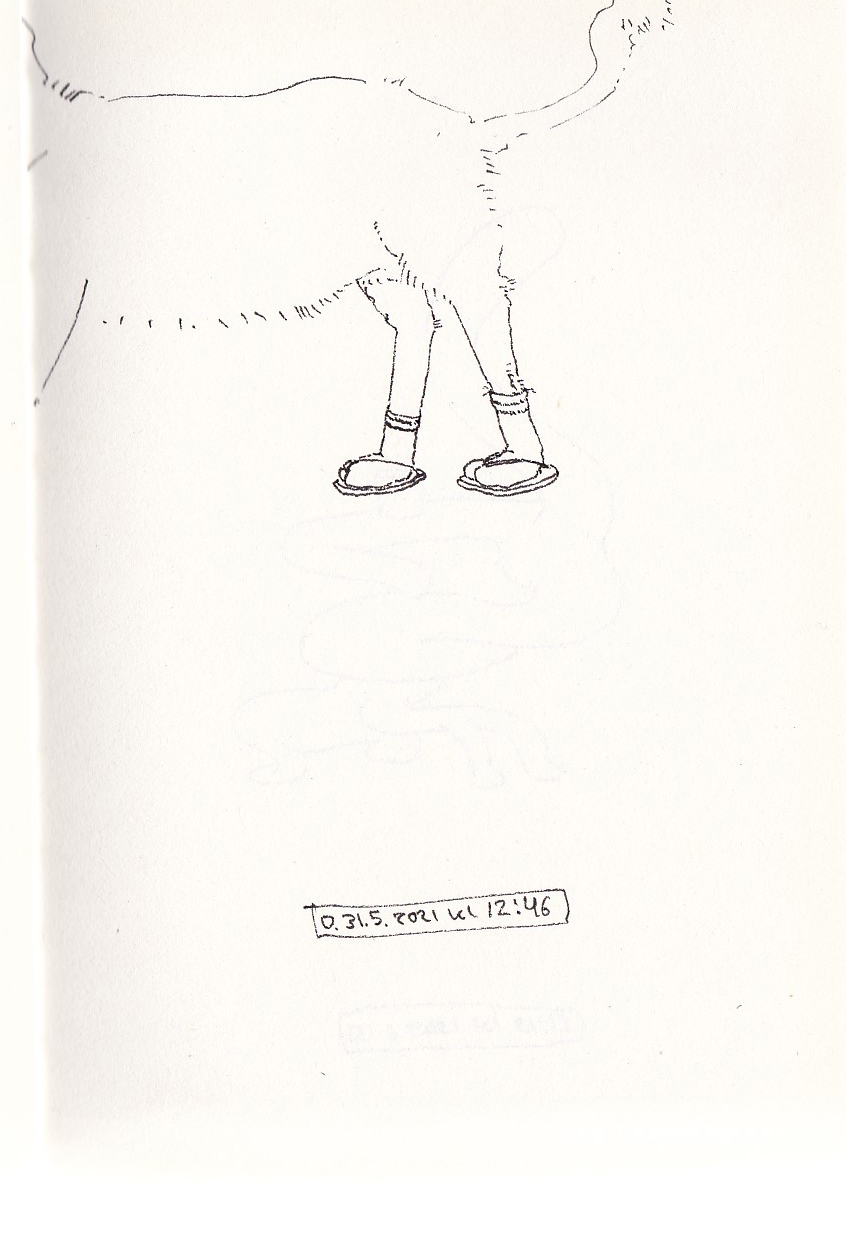 D. 31.5. 2021 kl 12:46